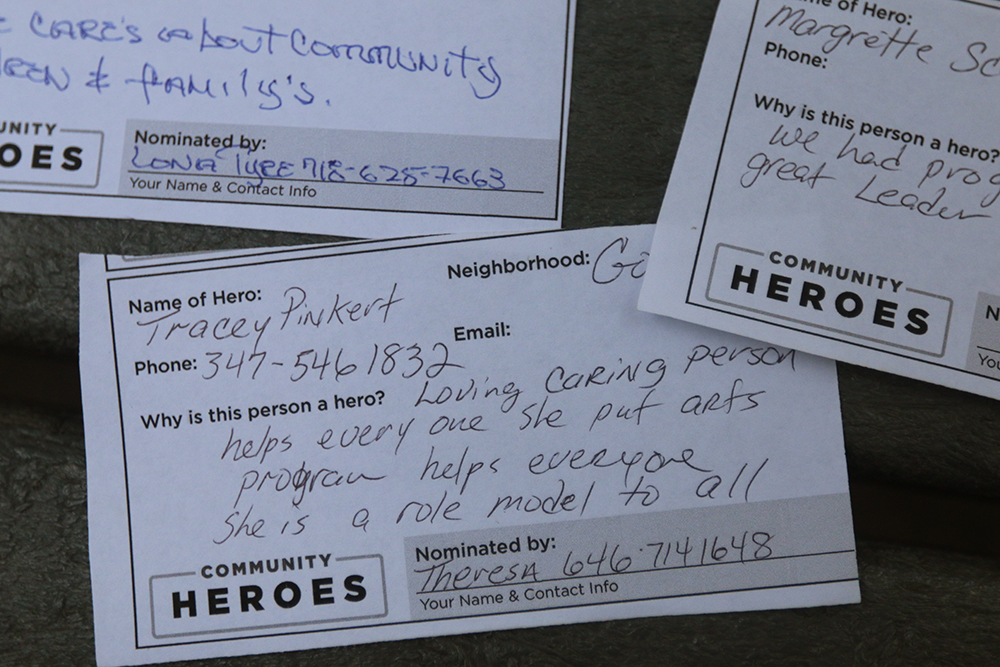 CARE'S about Community
& family's.
Nominated by:
Lona Tyree 718-625-7663
Your Name & Contact Info
OES
of Hero:
Margrette Sc
Phone:
Why is this person a hero?
we had prog
great Leader
COMMUNITY
HEROES
N
You
Neighborhood: Go
Name of Hero:
Tracey Pinkert
Email:
Phone: 347-546 1832
Why is this person a hero? Loving CARING person
helps every one she put arts
program helps everyone
She is a role model to all
COMMUNITY
HEROES
Nominated by:
Theresa 646-7141648
Your Name & Contact Info